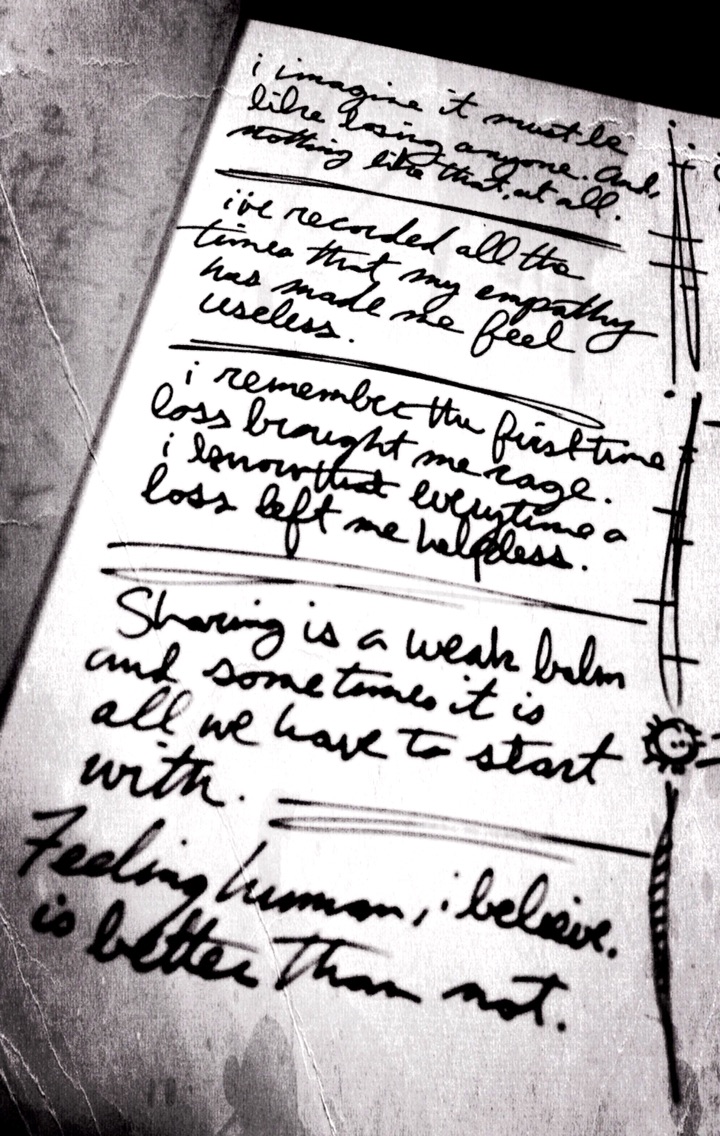 i imagine it must be
like losing anyone. And,
nothing like that, at all.
i've recorded all the
times that my empathy
has made me feel
useless.
i remember the first time
loss brought me rage.
i know that everytime a
loss left me helpless.
Sharing is a weak balm
and sometimes it is
all we have to start
with.
Feeling human, i believe.
is better than not.